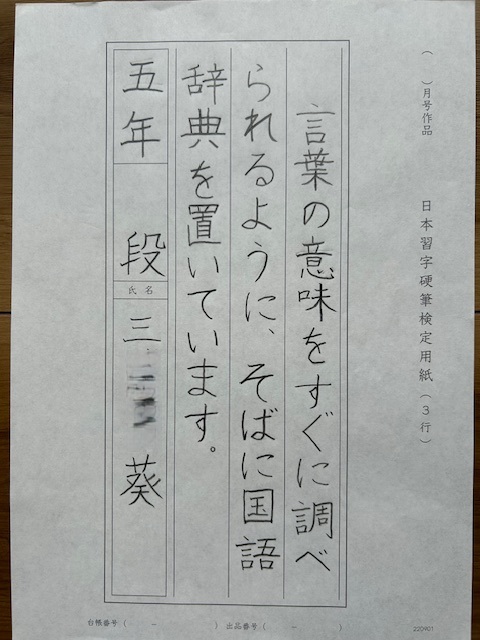 （　　）月号作品　日本習字硬筆検定用紙（３行）
言葉の意味をすぐに調べ
られるように、そばに国語
辞典を置いています。
五年　段
氏名
三　葵
台帳番号（　－　）　出品番号（　－　）
220401